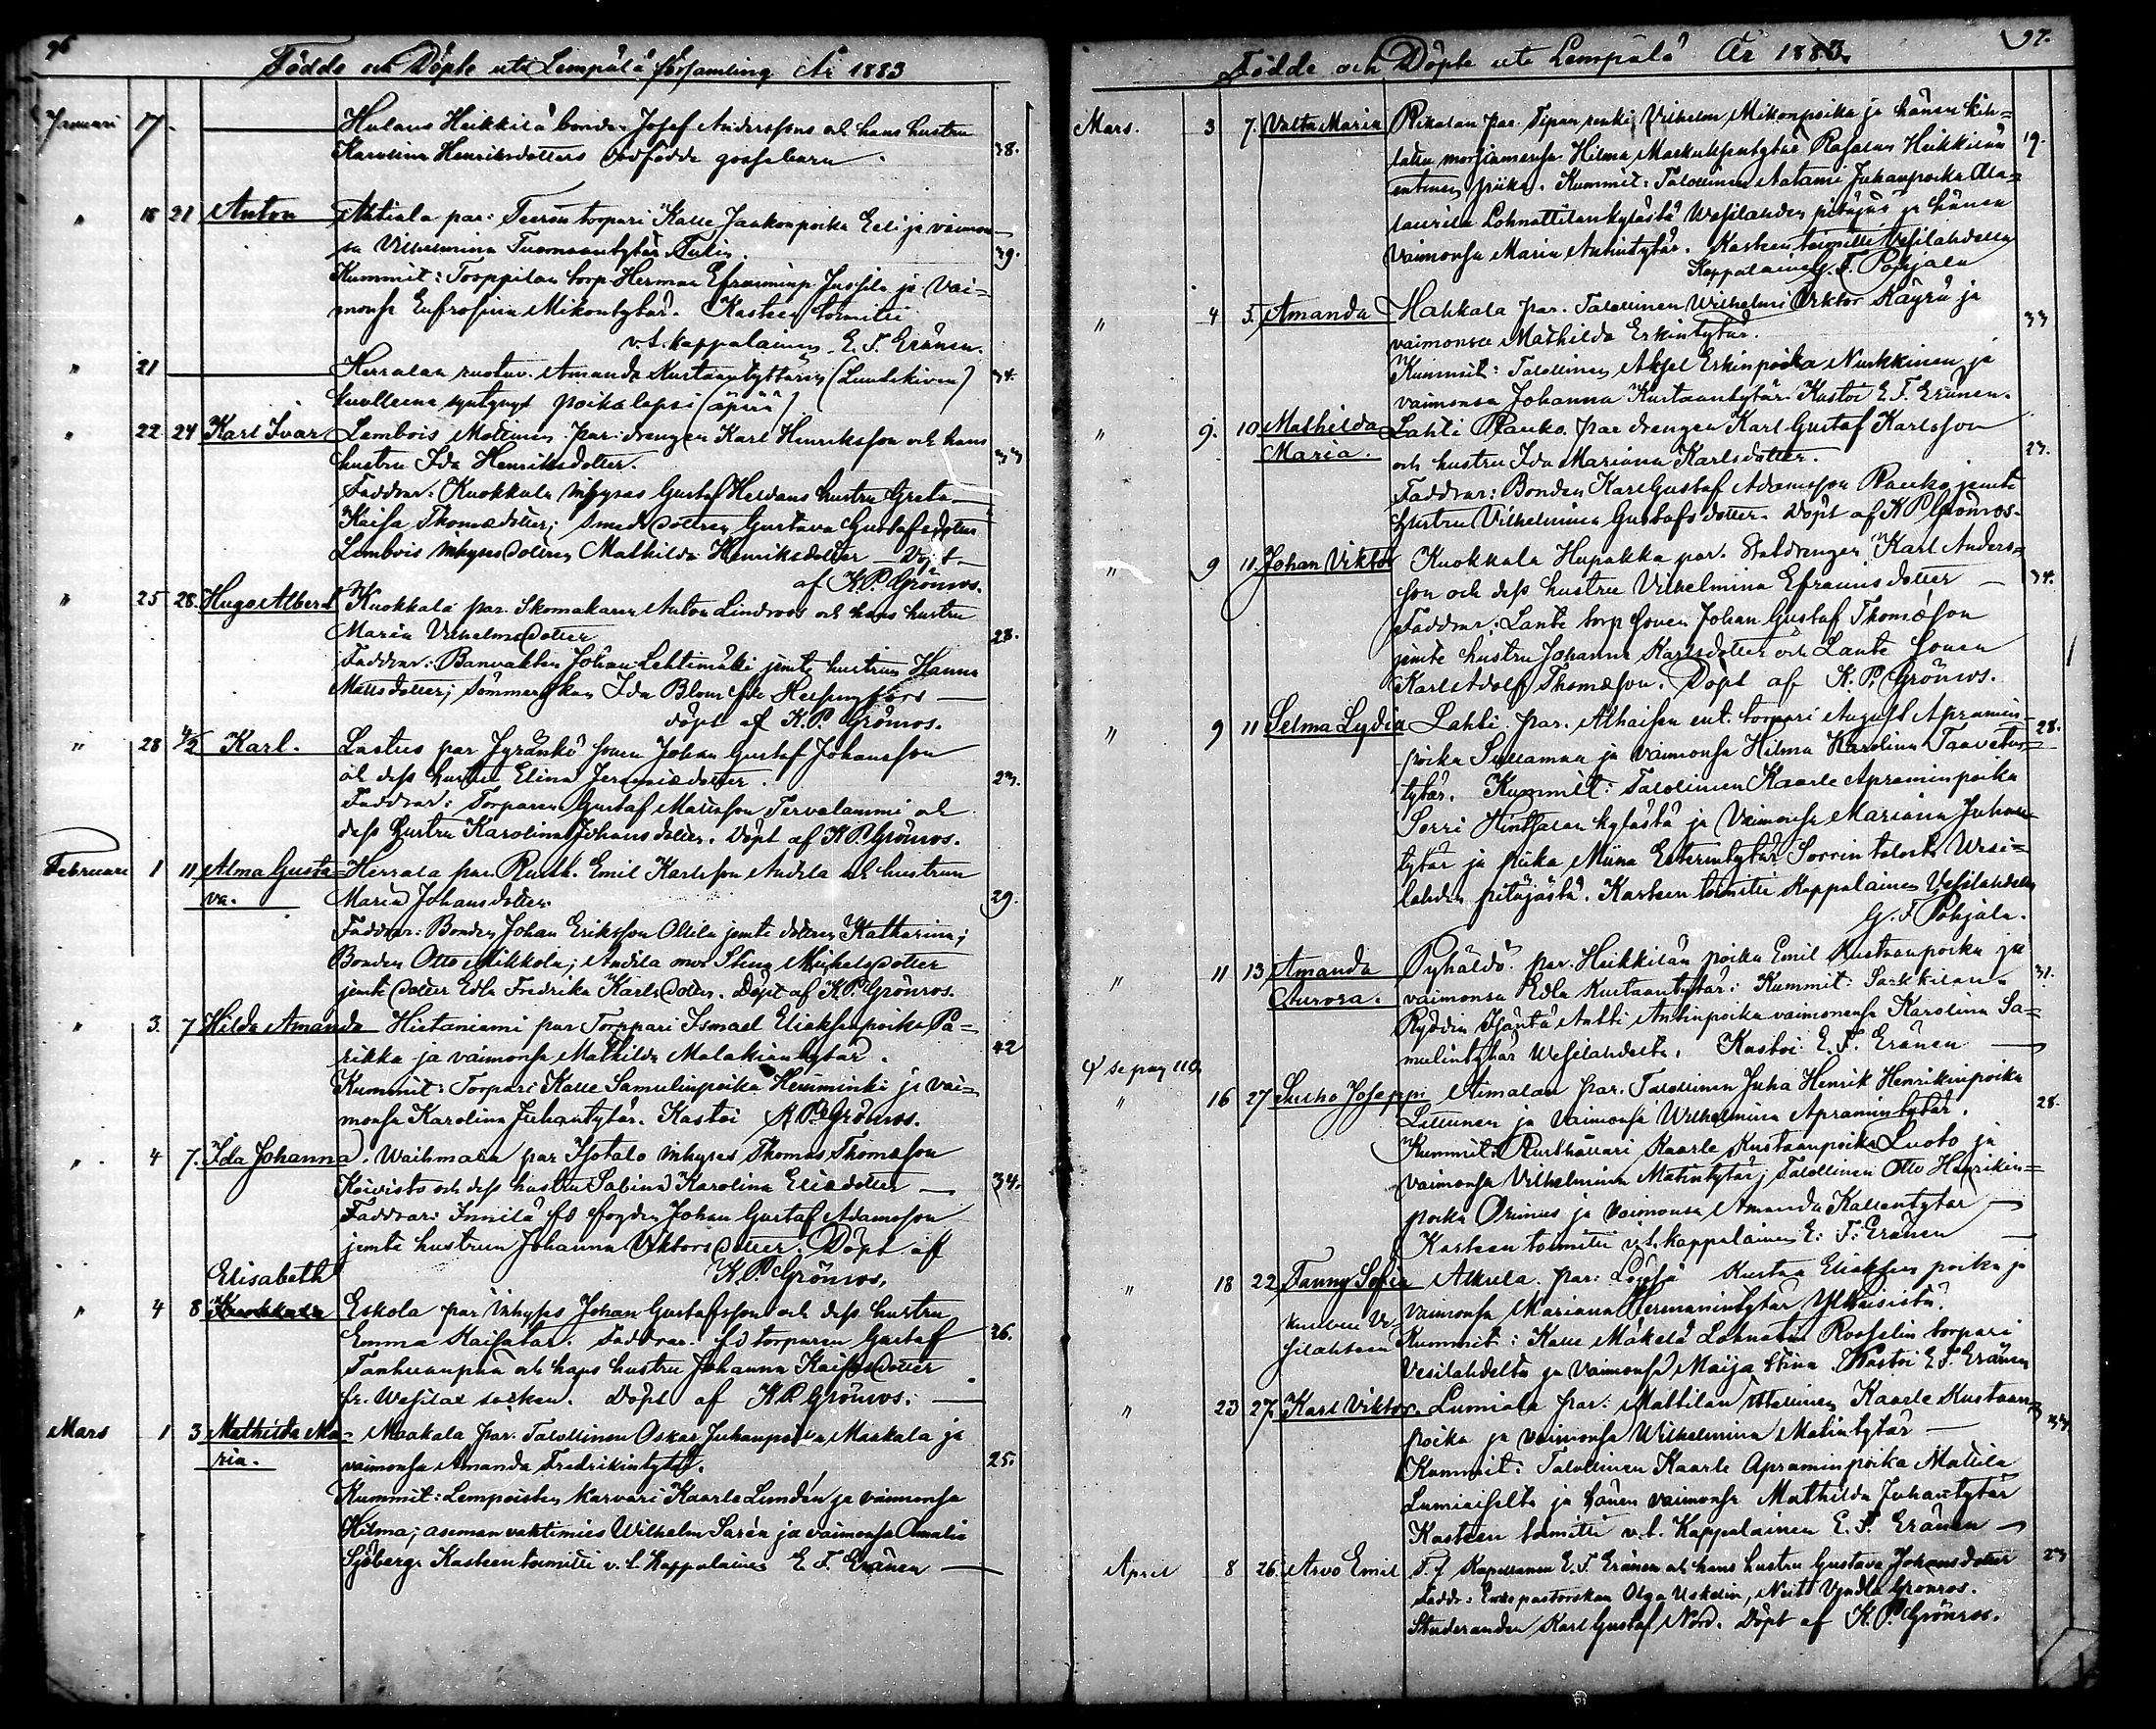 96
Födde och Döpte uti Lempälä församling År 1883
Januari 17. Hulaus Heikkilä bonde Josef Anderssons och hans hustru
Karolina Henriksdotters dödfödde gossebarn. 38.
" 18 21 Anton Ahtiala par: torpari Kalle Jaakonpoika Eeli ja vaimon-
sa Vilhelmina Tuomaantytär Tulin. 39.
Kummit: Torppilan torp. Herman Efraiminp. Jussila ja vai=
monsa Eufrosina Mikontytär. Kasteen toimitti
v.t. kappalainen E. F. Eränen.
" 21 Herralan ruotuv. Amanda Kustaantyttären (Lundskiven) 34.
kuolleena syntynyt poikalapsi (äpärä)
" 22 24 Karl Ivar Lembois Mattinen par: drengen Karl Henriksson och hans
hustru Ida Henriksdotter. 33
Faddrar: Kuokkala inhyses Gustaf Heldans hustru Greta
Kaisa Thomædotter; smeds dottren Gustava Gustafsdotter
Lembois inhyses dottren Mathilda Henriksdotter – Döpt
af K. P. Grönros.
" 25 28. Hugo Albert Kuokkala par. Skomakaren Anton Lindroos och hans hustru
Maria Vilhelmsdotter 28.
Faddrar: Banvakten Johan Lehtimäki jemte hustrun Hanna
Mattsdotter; sömmerskan Ida Blom från Helsingfors —
döpt af K. P. Grönros.
" 28 4/2 Karl. Lastus par Jyränkö sonen Johan Gustaf Johansson
och dess hustru Elina Jeremiædotter. 23.
Faddrar: Torparen Gustaf Mattsson Tervalammi och
dess hustru Karolina Johansdotter. Döpt af K. P. Grönros.
Februari 1 11 Alma Gusta- Herrala par Rusth. Emil Karlsson Andila och hustrun
va. Maria Johansdotter. 29.
Faddrar: Bonden Johan Eriksson Ollila jemte dottren Katharina;
Bonden Otto Mikkola; Andila mor Stina Michelsdotter
jemte dotter Edla Fredrika Karlsdotter. Döpt af K. P. Grönros.
" 3. 7 Hilda Amanda Hietaniemi par Torppari Ismael Eliaksenpoika Pa=
rikka ja vaimonsa Mathilda Malakiantytär. 42
Kummit: Torpari Kalle Samulinpoika Hemminki ja vai=
monsa Karolina Juhantytär. Kastoi K. P. Grönros.
" 4 7. Ida Johanna. Waihmala par Isotalo inhyses Thomas Thomasson
Koivisto och dess hustru Sabina Karolina Eliædotter — 34.
Faddrar: Innilä fd fogden Johan Gustaf Adamsson
jemte hustrun Johanna Viktorsdotter. Döpt af
Elisabeth K. P. Grönros.
" 4 8 Kuokkala Eskola par inhyses Johan Gustafsson och dess hustru
Emma Kaisatar. Faddrar: fd torparen Gustaf 26.
Tanhuanpää och hans hustru Johanna Kaisadotter
fr. Wesilax socken. Döpt af K. P. Grönros. —
Mars 1 3 Mathilda Ma- Maakala par. Talollinen Oskar Juhanpoika Maakala ja
ria. vaimonsa Amanda Fredrikintytär. 25.
Kummit: Lempoisten karvari Kaarlo Lundén ja vaimonsa
Hilma; aseman vahtimies Wilhelm Sarén ja vaimonsa Amalia
Sjöberg. Kasteen toimitti v. t. Kappalainen E. F. Eränen —
97.
Födde och Döpte uti Lempälä År 1883.
Mars. 3 7. Maria Rikalan par. renki Vilhelm Mikonpoika ja hänen kih=
lattu morsiamensa Hilma Markuksentytär Rasalan Heikkilän 19.
entinen piika. Kummit: Talollinen Aatami Juhanpoika Ala=
laurila Lohnattilankylästä Wesilahden pitäjäs ja hänen
vaimonsa Maria Antintytär. Kasteen toimitti Vesilahden
Kappalainen G. F. Pohjala
" 4 5. Amanda Hakkala par. Talollinen Wilhelmi Viktor Käyrä ja 33
vaimonsa Mathilda Erkintytär.
Kummit: Talollinen Aksel Erkinpoika Nurkkinen ja
vaimonsa Johanna Kustaantytär. Kastoi E. F. Eränen.
" 9. 10 Mathilda Lahti Ranko. par drengen Karl Gustaf Karlsson
Maria. och hustru Ida Mariana Karlsdotter. 23.
Faddrar: Bonden Karl Gustaf Adamsson Ranko jemte
hustru Vilhelmina Gustafsdotter. Döpt af K P Grönros.
" 9 11. Johan Viktor Kuokkala Hupakka par. Statdrengen Karl Anders=
son och dess hustru Vilhelmina Efraimsdotter — 34.
Faddrar: Lante torp sonen Johan Gustaf Thomæson
jemte hustru Johanna Karlsdotter och Lante sonen
Karl Adolf Thomæson. Döpt af K. P. Grönros.
" 9 11 Selma Lydia Lahti par. Alhaisen ent. torpari August Apramin 28.
poika Sullamaa ja vaimonsa Hilma Karolina Taavetin=
tytär. Kummit: Talollinen Kaarle Apraminpoika
Sorri Hinsalan kylästä ja Vaimonsa Mariana Juhan
tytär ja piika Miina Esterintytär Sorrin talosta Wesi=
lahden pitäjästä. Kasteen toimitti Kappalainen Vesilahdella
G. F. Pohjala.
" 11 13 Amanda Pyhältö par. Heikkilän poika Emil Kustaanpoika ja
Aurora. vaimonsa Edla Kustaantytär: Kummit: Sarkkilan 31.
isäntä Antti Antinpoika vaimonensa Karolina Sa=
mulintytär Wesilahdelta. Kastoi E. F. Eränen —
se pag 110
" 16 27 Juho Joseppi Aimalan par. Talollinen Juha Henrik Henrikinpoika
Lellunen ja Vaimonsa Wilhelmina Apramintytär. 28.
Kummit: Rusthällari Kaarle Kustaanpoika Luoto ja
vaimonsa Vilhelmina Matintytär; Talollinen Otto Henrikin=
poika Orinius ja Vaimonsa Amanda Kallentytär —
Kasteen toimitti v. t. kappalainen E. F. Eränen —
" 18 22 Fanny Sofia Alkula. par: Kustaa Eliaksen poika ja
vaimonsa Mariana Hermanintytär
Kummit: Kalle Mäkelä Torpari
Vesilahdelta ja Vaimonsa Maija Stina. Kastoi E F. Eränen
" 23 27. Karl Viktor. Lumiala par: Mattilan Kaarle Kustaan
poika ja vaimonsa Wilhelmina Matintytär — 33
Kummit: Talollinen Kaarle Apraminpoika Mattila
Lumiaiselta ja hänen vaimonsa Mathilda Juhantytär
Kasteen toimitti v. t. Kappalainen E. F. Eränen —
April 8 26. Arvo Emil T. f. Kapellanen E. F. Eränen och hans hustru Gustava Johansdotter 23
Faddr: Enkepastorskan Olga Uskelin, Grönros.
Studeranden Karl Gustaf Nord. Döpt af K. P. Grönros.